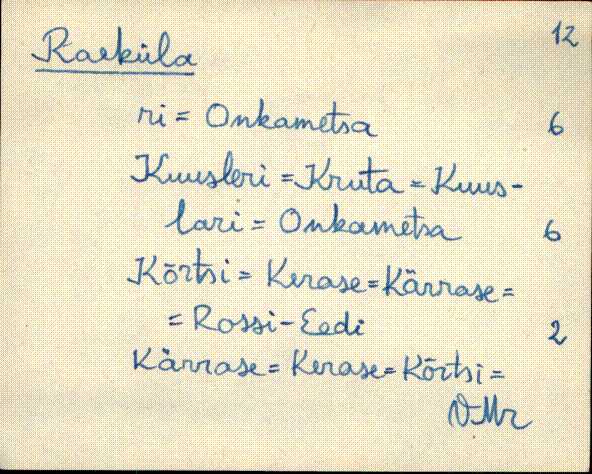 12
Raeküla
ri = Onkametsa 6
Kuusleri = Kruta = Kuus-
lari = Onkametsa 6
Kõrtsi = Kerase = Kärrase =
= Rossi-Eedi 2
Kärrase = Kerase = Kõrtsi =